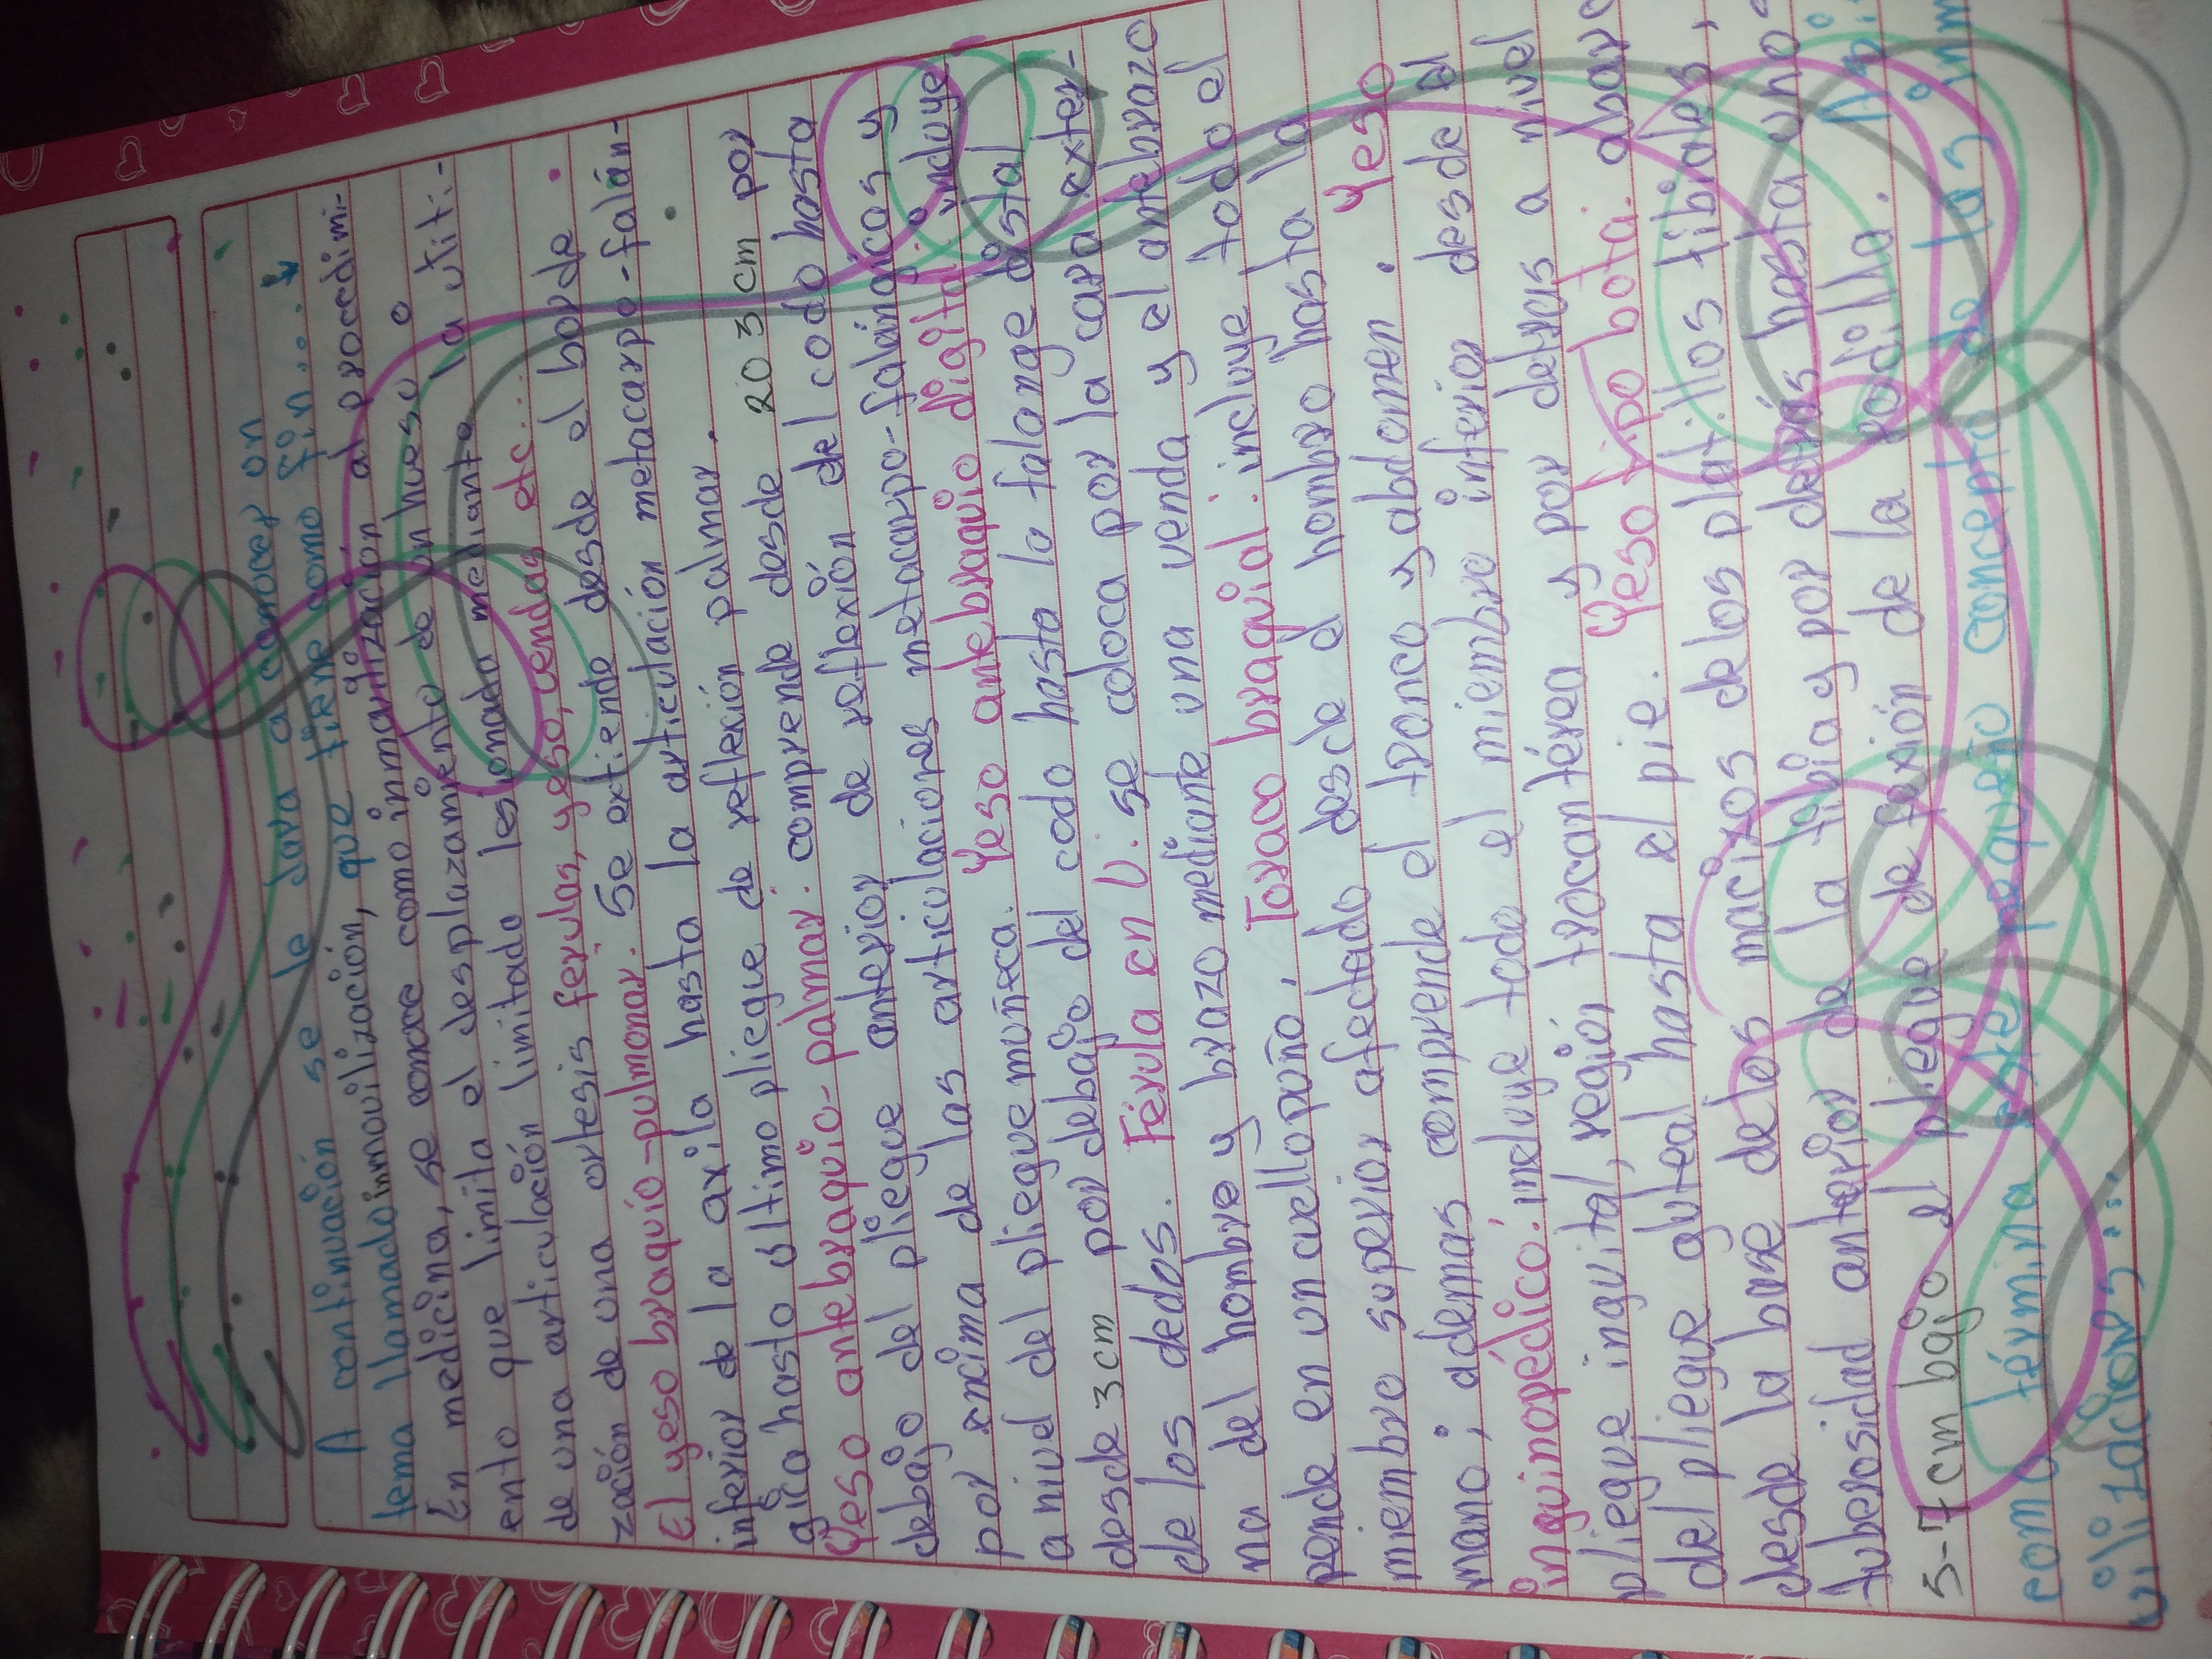 A continuación se le dara a conocer un
tema llamado inmovilización, que tiene como fin...
En medicina, se conoce como inmovilización al procedimi-
ento que limita el desplazamiento de un hueso o
de una articulación limitado lesionada mediante la uti-
zación de una ortesis ferulas, yeso, vendas etc....
El yeso braquio-pulmonar: Se extiende desde el borde
inferior de la axila hasta la articulación metacarpo-falán-
gica hasto ultimo pliegue de reflexión palmar.
Yeso antebraquio-palmar: comprende desde 2 o 3 cm por
debajo del pliegue anterior de reflexión del codo hasta
por encima de las articulaciones metacarpo-falángicas y
a nivel del pliegue muñeca. Yeso antebraquio digital: incluye
desde 3cm por debajo del codo hasta la falange distal
de los dedos. Férula en U: se coloca por la cara exter-
na del hombre y brazo mediante una venda y el antebrazo
pende en un cuello puño. Toraco braquial: incluye todo el
miembro superior afectado desde el hombro hasta la
mano; ademas comprende el tronco y abdomen. Yeso
inguinopédico: incluye todo el miembro inferior desde el
pliegue inguital, región trocantérea y por detras a nivel
del pliegue gluteal hasta el pie. Yeso tipo bota: abarc
desde la base delos macizos delos platillos tibiales,
tuberosidad anterior de la tibia y por detrás hasta unos
5-7cm bajo el pliegue de fexión de la rodilla. Asi
como términa este pequeño concepto de las inm
vilizacions...